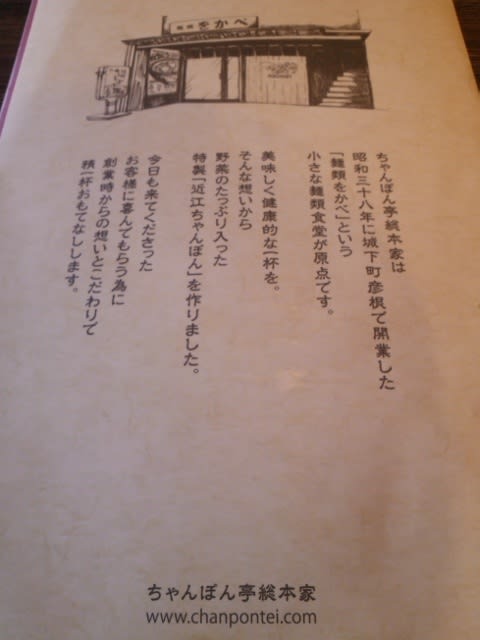 麺類をかべ
ちゃんぽん亭総本家は
昭和三十八年に城下町彦根で開業した
「麺類をかべ」という
小さな麺類食堂が原点です。
美味しく健康的な一杯を。
そんな想いから
野菜のたっぷり入った
特製「近江ちゃんぽん」を作りました。
今日も来てくださった
お客様に喜んでもらう為に
創業時からの想いとこだわりで
精一杯おもてなしします。
ちゃんぽん亭総本家
www.chanpontei.com